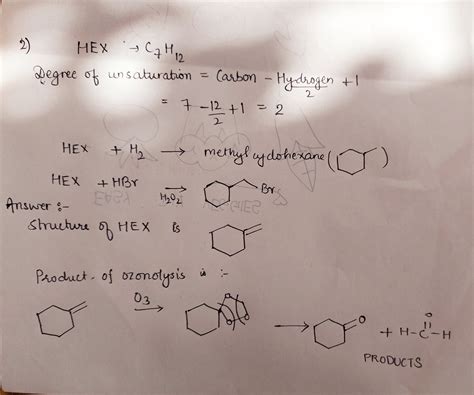 2) HEX → C7H12
Degree of unsaturation = Carbon - Hydrogen/2 + 1
= 7 - 12/2 + 1 = 2
HEX + H2 → methylcyclohexane ( )
HEX + HBr → H2O2 Br
Answer :-
Structure of HEX is
Product of ozonolysis is :-
O3 O O O → O + H-C-H O
PRODUCTS